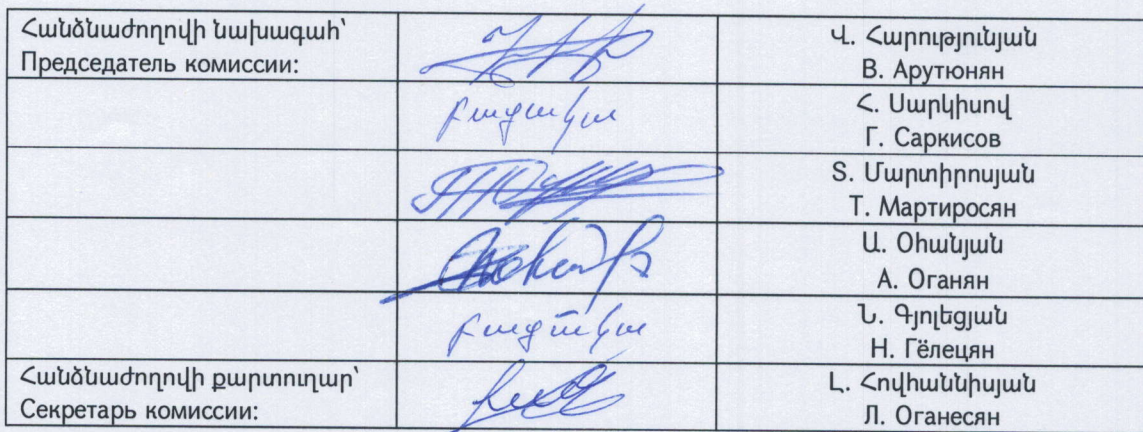 Հանձնաժողովի նախագահ՝
Председатель комиссии:
Վ. Հարությունյան
В. Арутюнян
բացակա
Հ. Սարկիսով
Г. Саркисов
Տ. Մարտիրոսյան
Т. Мартиросян
Ա. Օհանյան
А. Оганян
բացակա
Ն. Գյոլեցյան
Н. Гёлецян
Հանձնաժողովի քարտուղար՝
Секретарь комиссии:
Լ. Հովհաննիսյան
Л. Оганесян